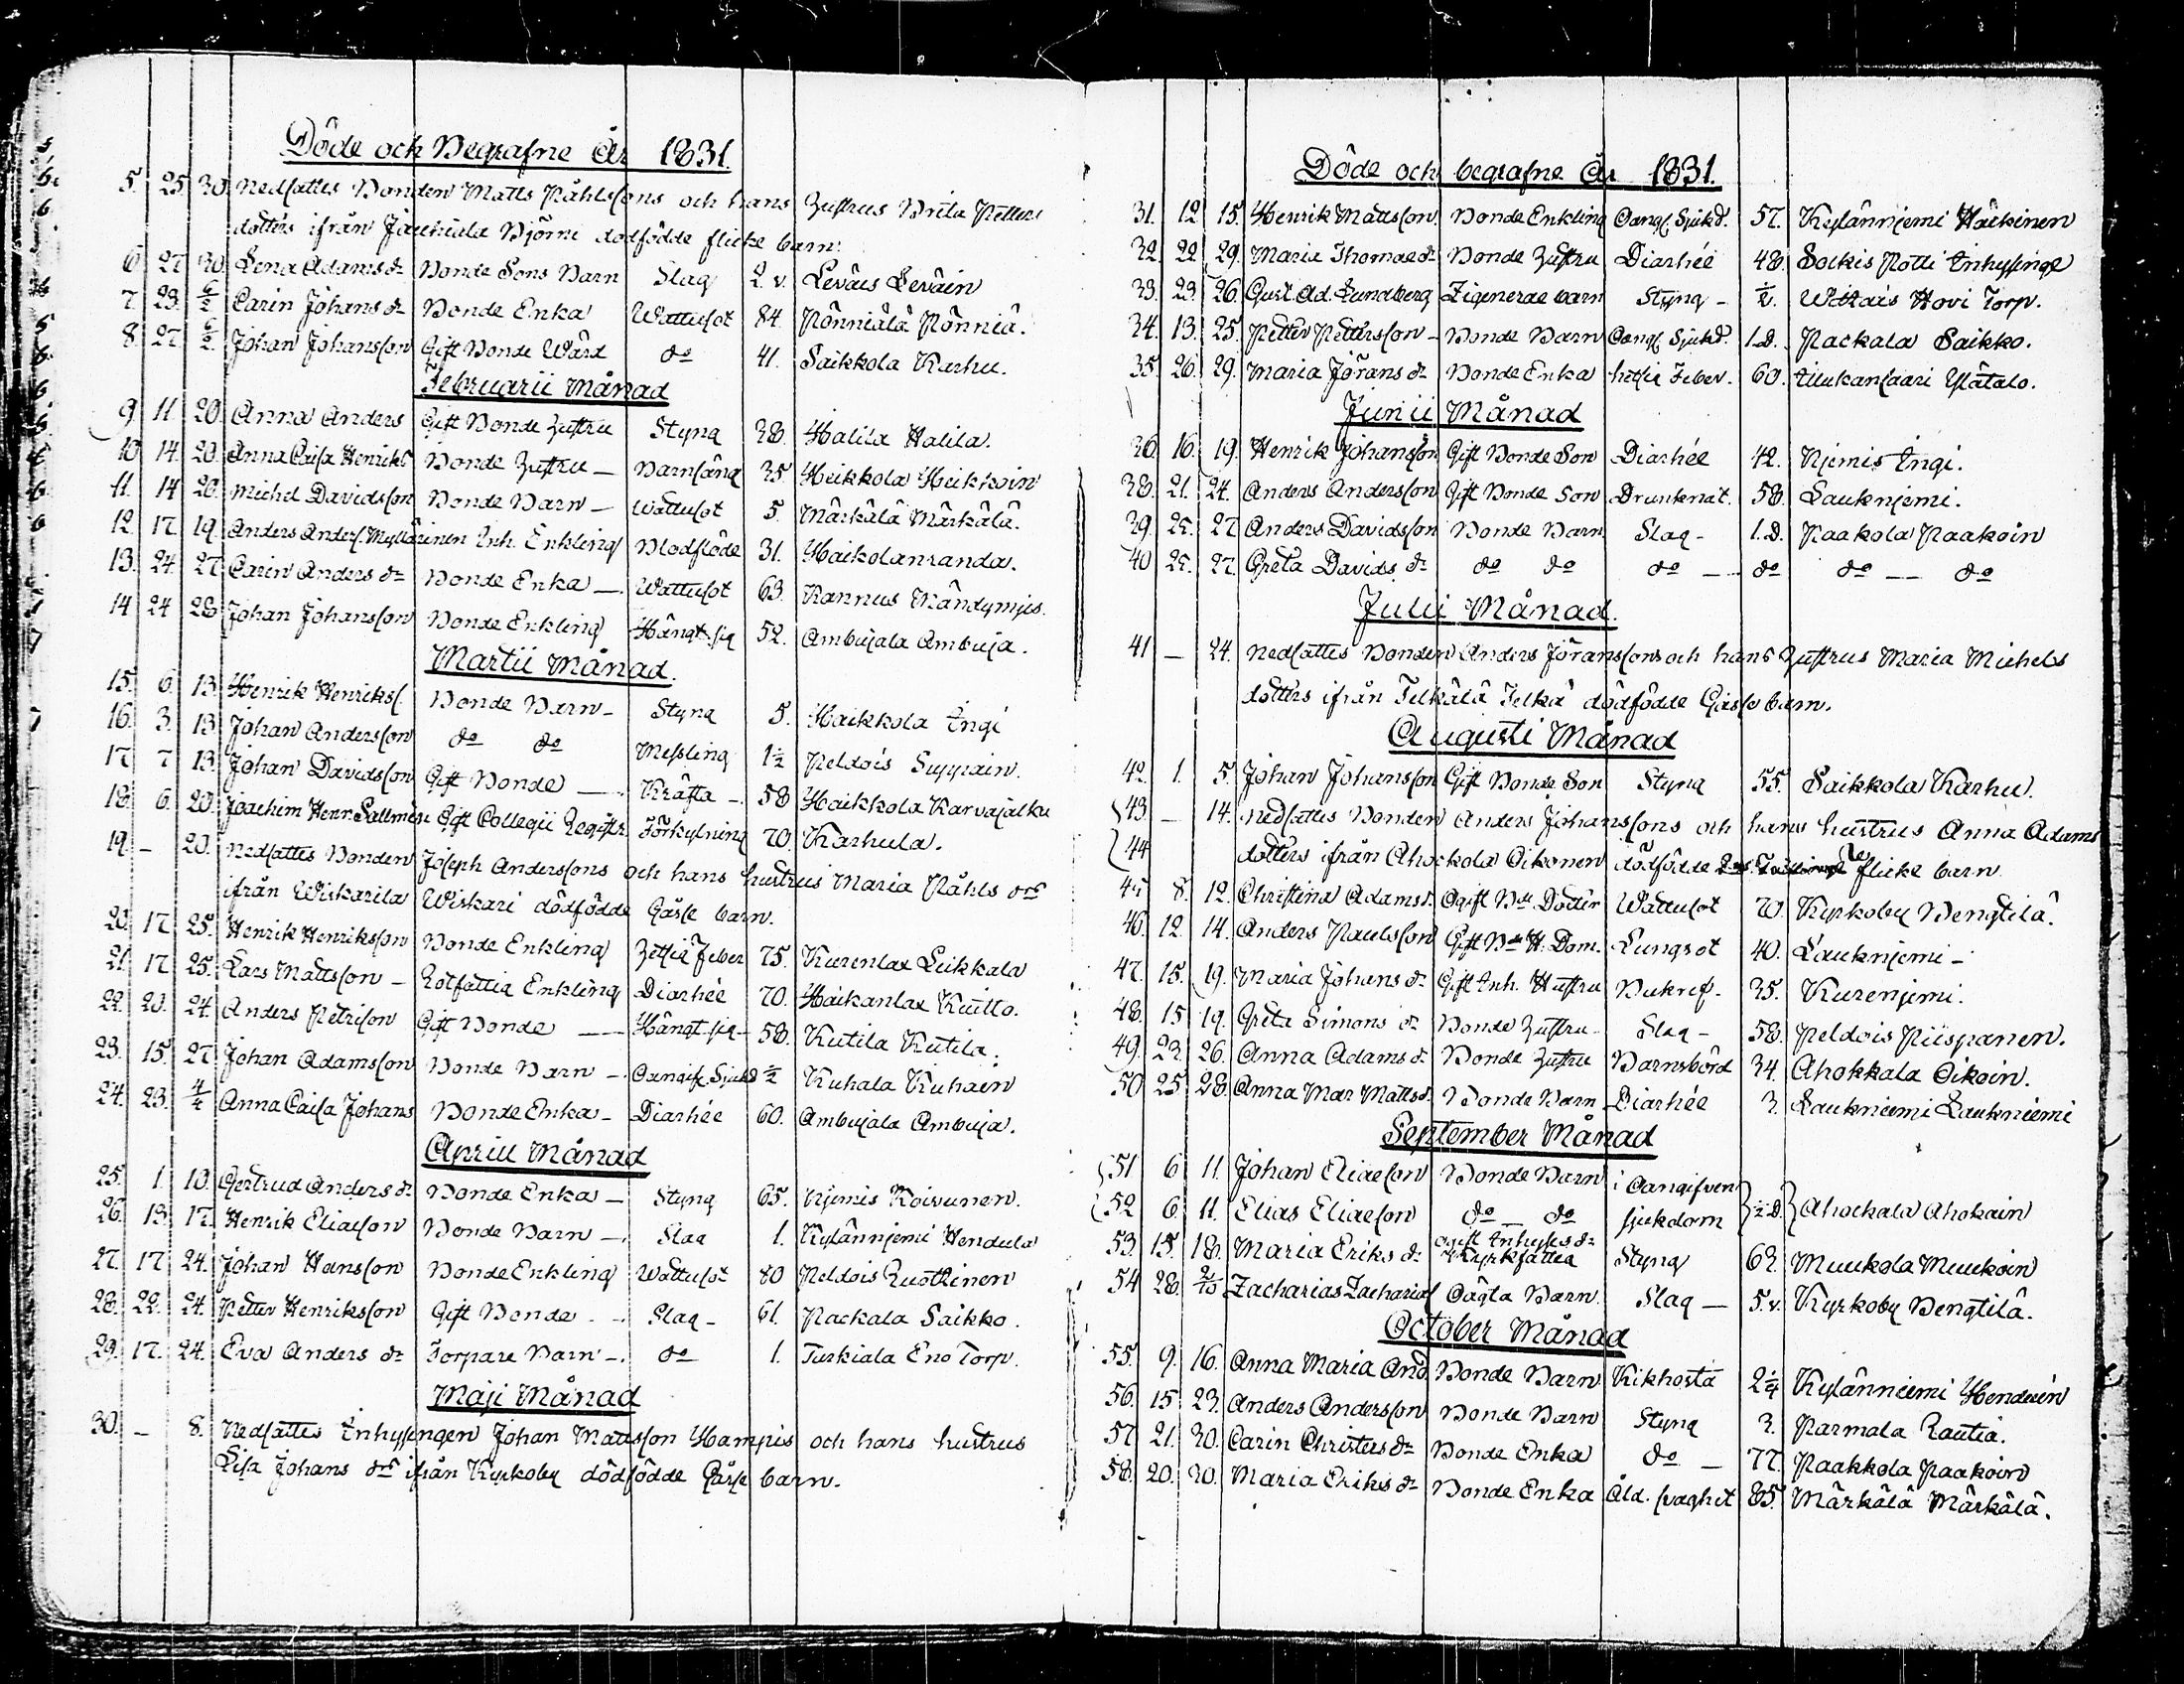 Döde och Begrafne År 1831.
5. 25 30 Nedsattes Bonden Matts Påhlssons och hans hustrus Brita Petters
dotters ifrån Björni dödfödde flicke barn.
6. 27 30. Lena Adams dr Bonde Sons Barn Slag 2 v. Leväis Leväin
7. 29. 6/2 Carin Johans dr Bonde Enka Wattusot 84. Pönniälä Pönniä.
8. 27 6/2. Johan Johansson Gift Bonde Wärd do 41. Saikkola Karhu.
Februarii Månad
9. 11. 20. Anna Anders Gift Bonde hustru Styng 38. Halila Halila.
10 14. 20. Anna Caisa Henriks Bonde hustru — Barnsäng 35. Heikkola Heikkoin
11. 14 20. Michel Davidsson Bonde Barn — Wattusot 5. Märkälä Märkälä.
12. 17. 19. Anders Anders. Myllärinen Inh. Enkling Blodflöde 31. Haikolanranda.
13. 24. 27. Carin Anders dr Bonde Enka — Wattusot 63. Kannus Mändymjis.
14 24 28 Johan Johansson Bonde Enkling Hängt sig 52. Ambujala Ambuja.
Martii Månad.
15. 6. 13. Henrik Henriks. Bonde Barn — Styng 5. Haikkola Ingi
16. 3. 13. Johan Andersson do do Messling 1½ Peldois Suppoin.
17 7 13. Johan Davidsson Gift Bonde — Kräfta — 58 Haikkola Karvajalka
18. 6. 20. Joachim Henr. Sallmén Gift Collegii Registr. Förkylning 70. Karhula.
19. — 20. Nedsattes Bonden Joseph Anderssons och hans hustrus Maria Påhls drs
ifrån Wiskarila Wiskari dödfödde Gåsse barn.
20. 17. 25. Henrik Henriksson Bonde Enkling hetsig feber 75. Kurenlax Leikkala
21. 17 25. Lars Mattsson — Rotfattig Enkling Diarhée 70. Haikanlax Kuitto.
22. 20. 24. Anders Petrison Gift Bonde — Hängt sig — 58. Kutila Kutila.
23. 15. 27 Johan Adamsson Bonde Barn — Oangif. Sjukd ½ Kuhala Kuhain
24. 23. 4/4 Anna Caisa Johans Bonde Enka — Diarhée 60. Ambujala Ambuja.
Aprill Månad
25. 1. 10. Gertrud Anders dr Bonde Enka — Styng 65. Njemis Koivunen.
26. 13. 17. Henrik Eliasson Bonde Barn — Slag 1. Kylännjemi Hendula
27. 17 24. Johan Hansson Bonde Enkling Wattusot 80 Peldois Ruottinen
28. 22. 24. Petter Henriksson Gift Bonde — Slag — 61. Packala Saikko.
29. 17. 24. Eva Anders dr Torpare Barn — do 1. Turkiala Eno Torp.
Maji Månad
30. — 8. Nedsattes Inhysingen Johan Mattsson Hampus och hans hustrus
Lisa Johans drs ifrån Kyrkoby dödfödde Gåsse barn.
Döde och begrafne År 1831.
31. 12 15. Henrik Mattsson. Bonde Enkling Oang. Sjukd. 57. Kylännjemi Häkinen
32. 22 29. Maria Thomae dr Bonde hustru Diarhée 48. Solkis Potti Inhysinge
33. 23 26. Gust. Ad. Lundberg Zigenerae barn Styng — ½. Wittais Hovi Torp.
34. 13. 25. Petter Pettersson — Bonde Barn Oang. Sjukd. 1. D. Packala Saikko.
35. 26. 29. Maria Jörans dr Bonde Enka hetsig Feber. 60. Ylätalo.
Junii Månad
36 16. 19. Henrik Johansson Gift Bonde Son Diarhée 42. Njemis Ingi.
38. 21. 24. Anders Andersson Gift Bonde Son Drunknat. 58. Lauknjemi.
39. 25. 27 Anders Davidsson Bonde Barn Slag — 1. D. Paakola Paakoin
40 25. 27. Greta Davids dr do do do — do do — do
Julii Månad.
41 — 24. Nedsattes Bonden Anders Jöranssons och hans hustrus Maria Michels
dotters ifrån Telkälä Telkä dödfödde Gåsse barn.
Augusti Månad
42. 1. 5. Johan Johansson Gift Bonde Son Styng 55. Saikkola Karhu.
43. — 14. Nedsattes Bonden Anders Johanssons och hans hustrus Anna Adams
44 dotters ifrån Ahockola Oikonen dödfödde flicke barn
45 8. 12. Christina Adams d. Ogift Bde Dotter Wattusot 70. Kyrkoby Bengtilä.
46. 12. 14. Anders Paulsson Gift Bde H. Dom. Lungsot 40. Lauknjemi —
47. 15. 19. Maria Johans dr Gift Inh. Hustru Bukref. 35. Kurenjemi.
48. 15 19. Greta Simons dr Bonde hustru — Slag — 58. Peldois Piispanen.
49. 23. 26. Anna Adams d. Bonde hustru Barnsbörd 34. Ahokkala Oikoin.
50 25 28. Anna Mar. Matts d. Bonde Barn Diarhée 3. Laukniemi Laukniemi
September Månad
51 6 11. Johan Eliasson Bonde Barn i Oangifven
52 6. 11. Elias Eliasson do — do sjukdom ½ D. Ahockala Ahokain
53. 15. 18. Maria Eriks dr ogift Inhyses dr Kyrkfattig Styng 62. Muukola Muukoin
54 28. 2/10 Zacharias Zacharias. Oägta Barn. Slag — 5. v. Kyrkoby Bengtilä.
October Månad
55. 9. 16. Anna Maria And Bonde Barn Kikhosta 2¼ Kylänniemi Henduin
56. 15 23. Anders Andersson Bonde Barn Styng 3. Parmala Rautia.
57 21. 30. Carin Christers dr Bonde Enka do — 77. Paakkola Paakoin
58. 20. 30. Maria Eriks dr Bonde Enka Åld. svaghet 85. Märkälä Märkälä.